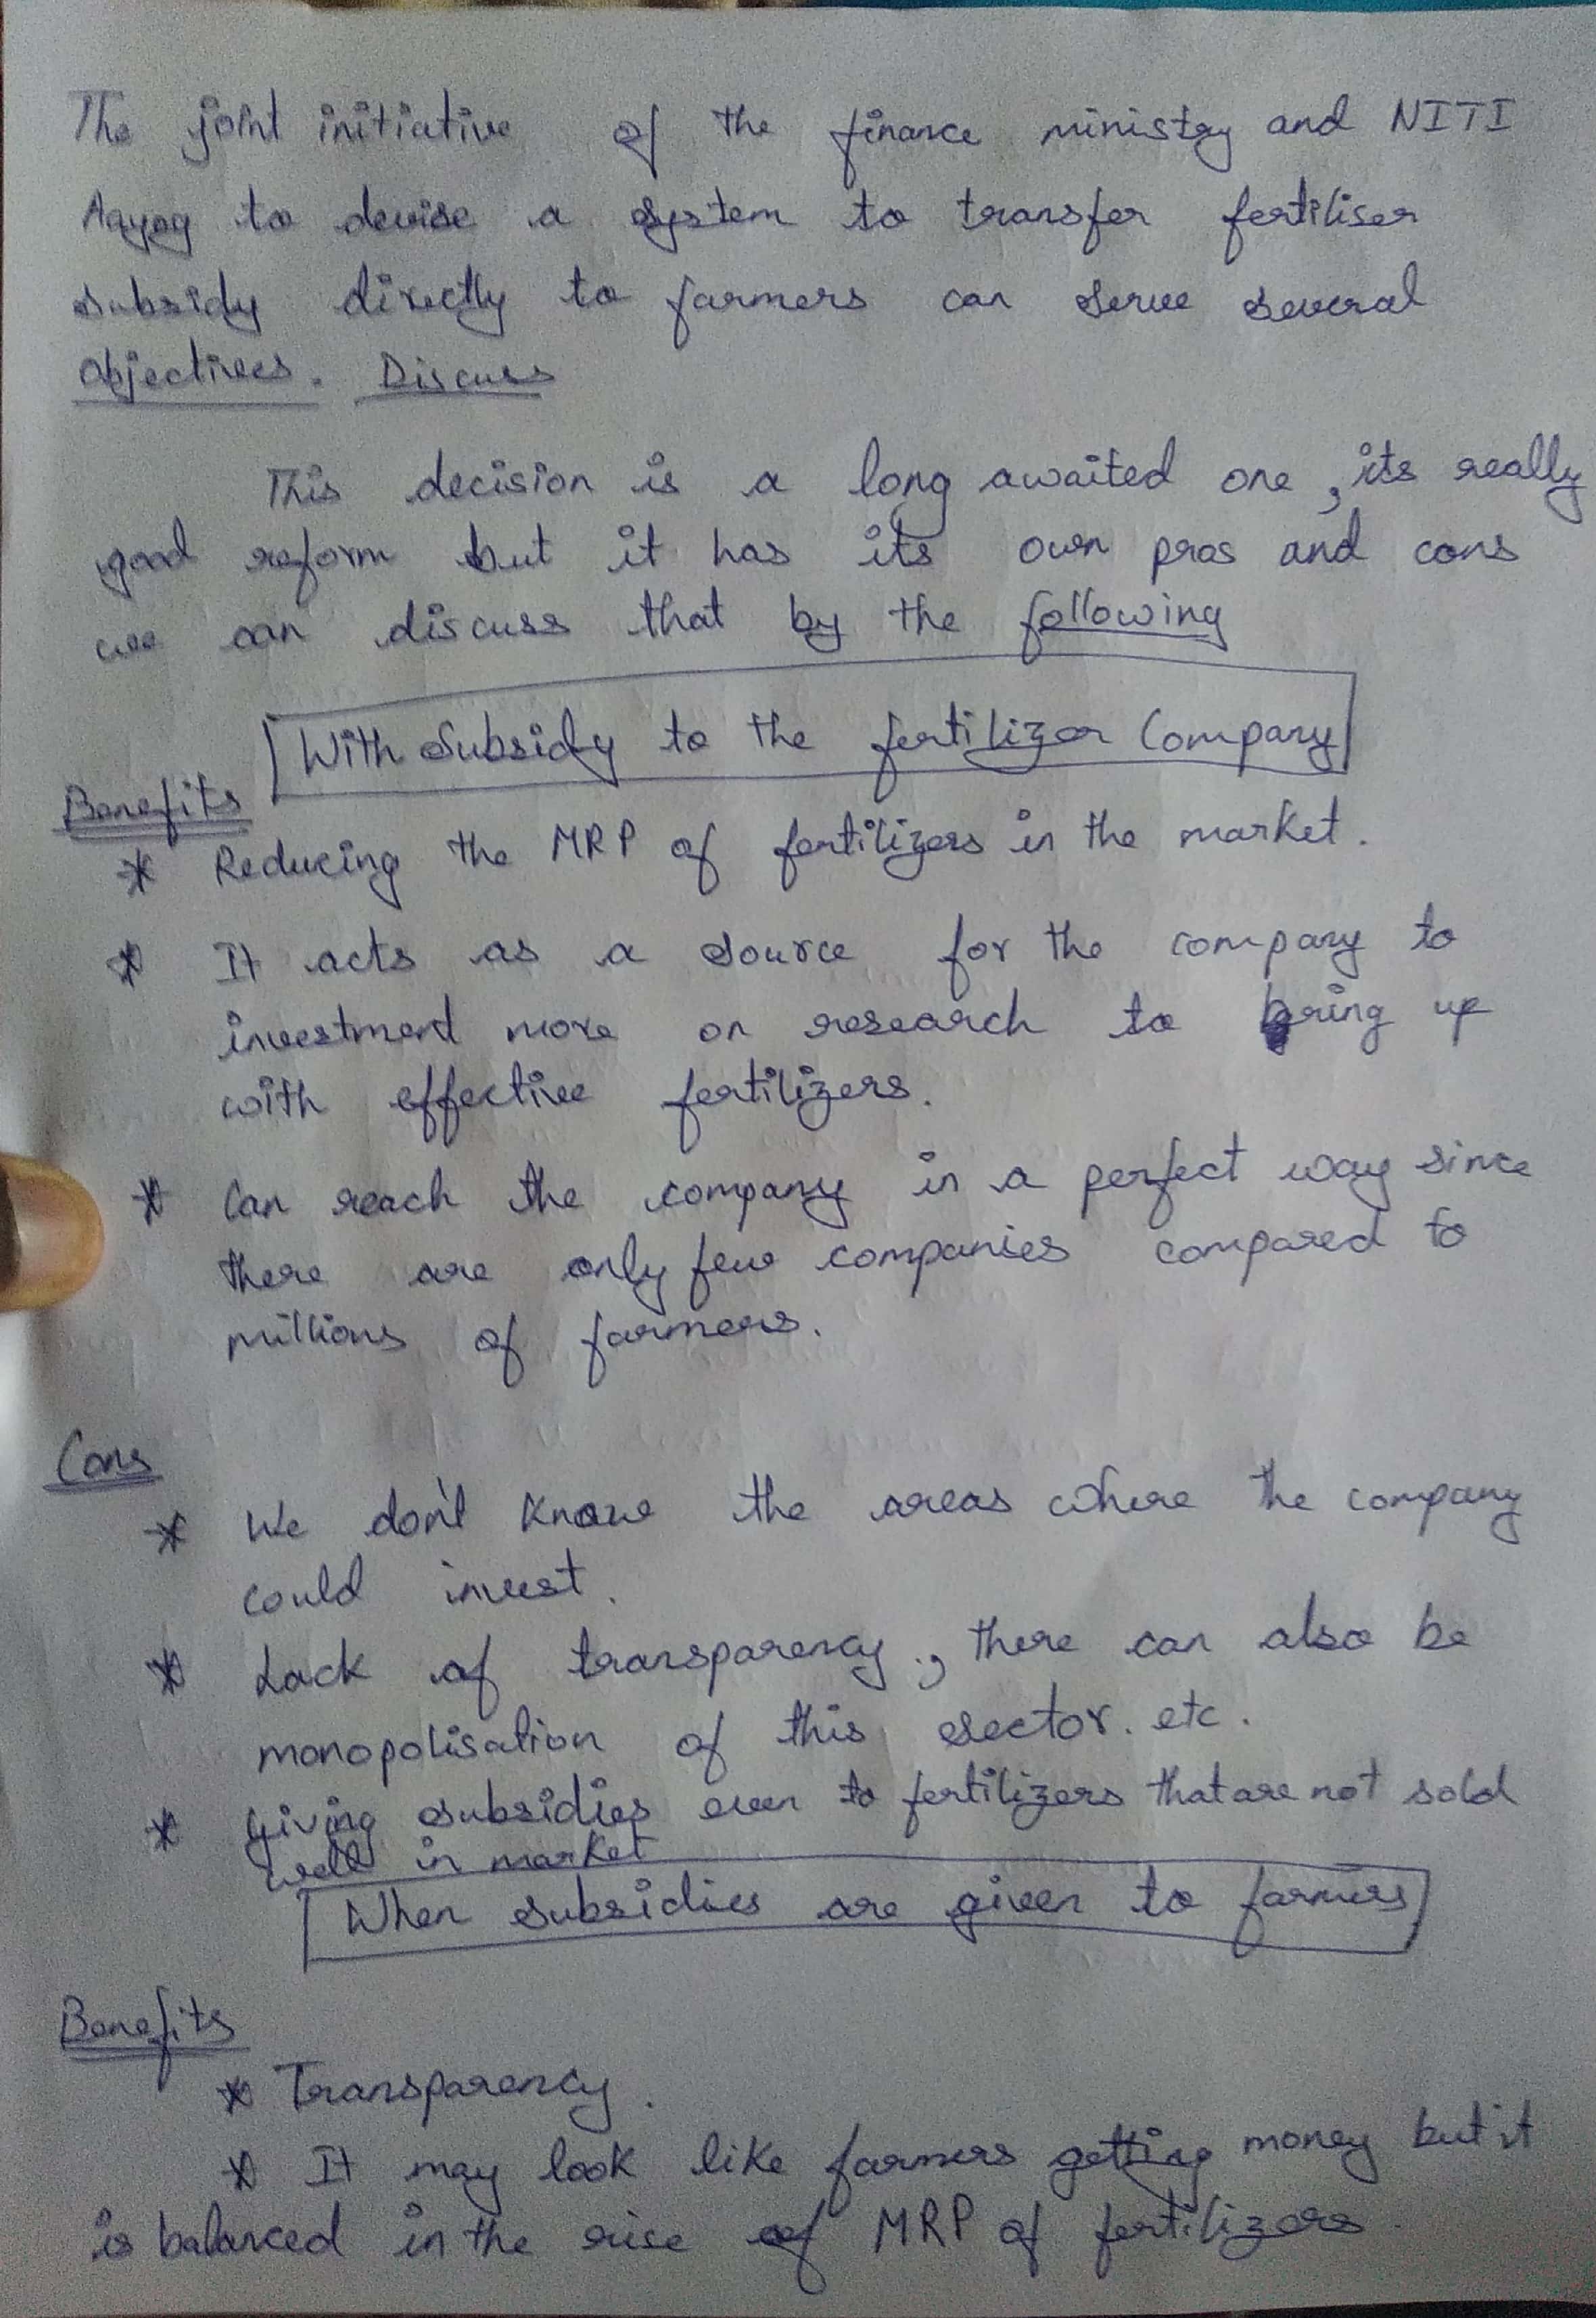 The joint initiative of the finance ministry and NITI
Aayog to devise a system to transfer fertiliser
subsidy directly to farmers can serve several
objectives. Discuss
This decision is a long awaited one, its really
good reform but it has its own pros and cons
we can discuss that by the following
With Subsidy to the fertilizer Company
Benefits
* Reducing the MRP of fertilizers in the market.
* It acts as a source for the company to
investment more on research to bring up
with effective fertilizers.
* Can reach the company in a perfect way since
there are only few companies compared to
millions of farmers.
Cons
* We don't know the areas where the company
could invest.
* Lack of transparency, there can also be
monopolisation of this sector. etc.
* Giving subsidies even to fertilizers that are not sold
well in market
When subsidies are given to farmers
Benefits
* Transparency.
* It may look like farmers getting money but it
is balanced in the rise of MRP of fertilizers.